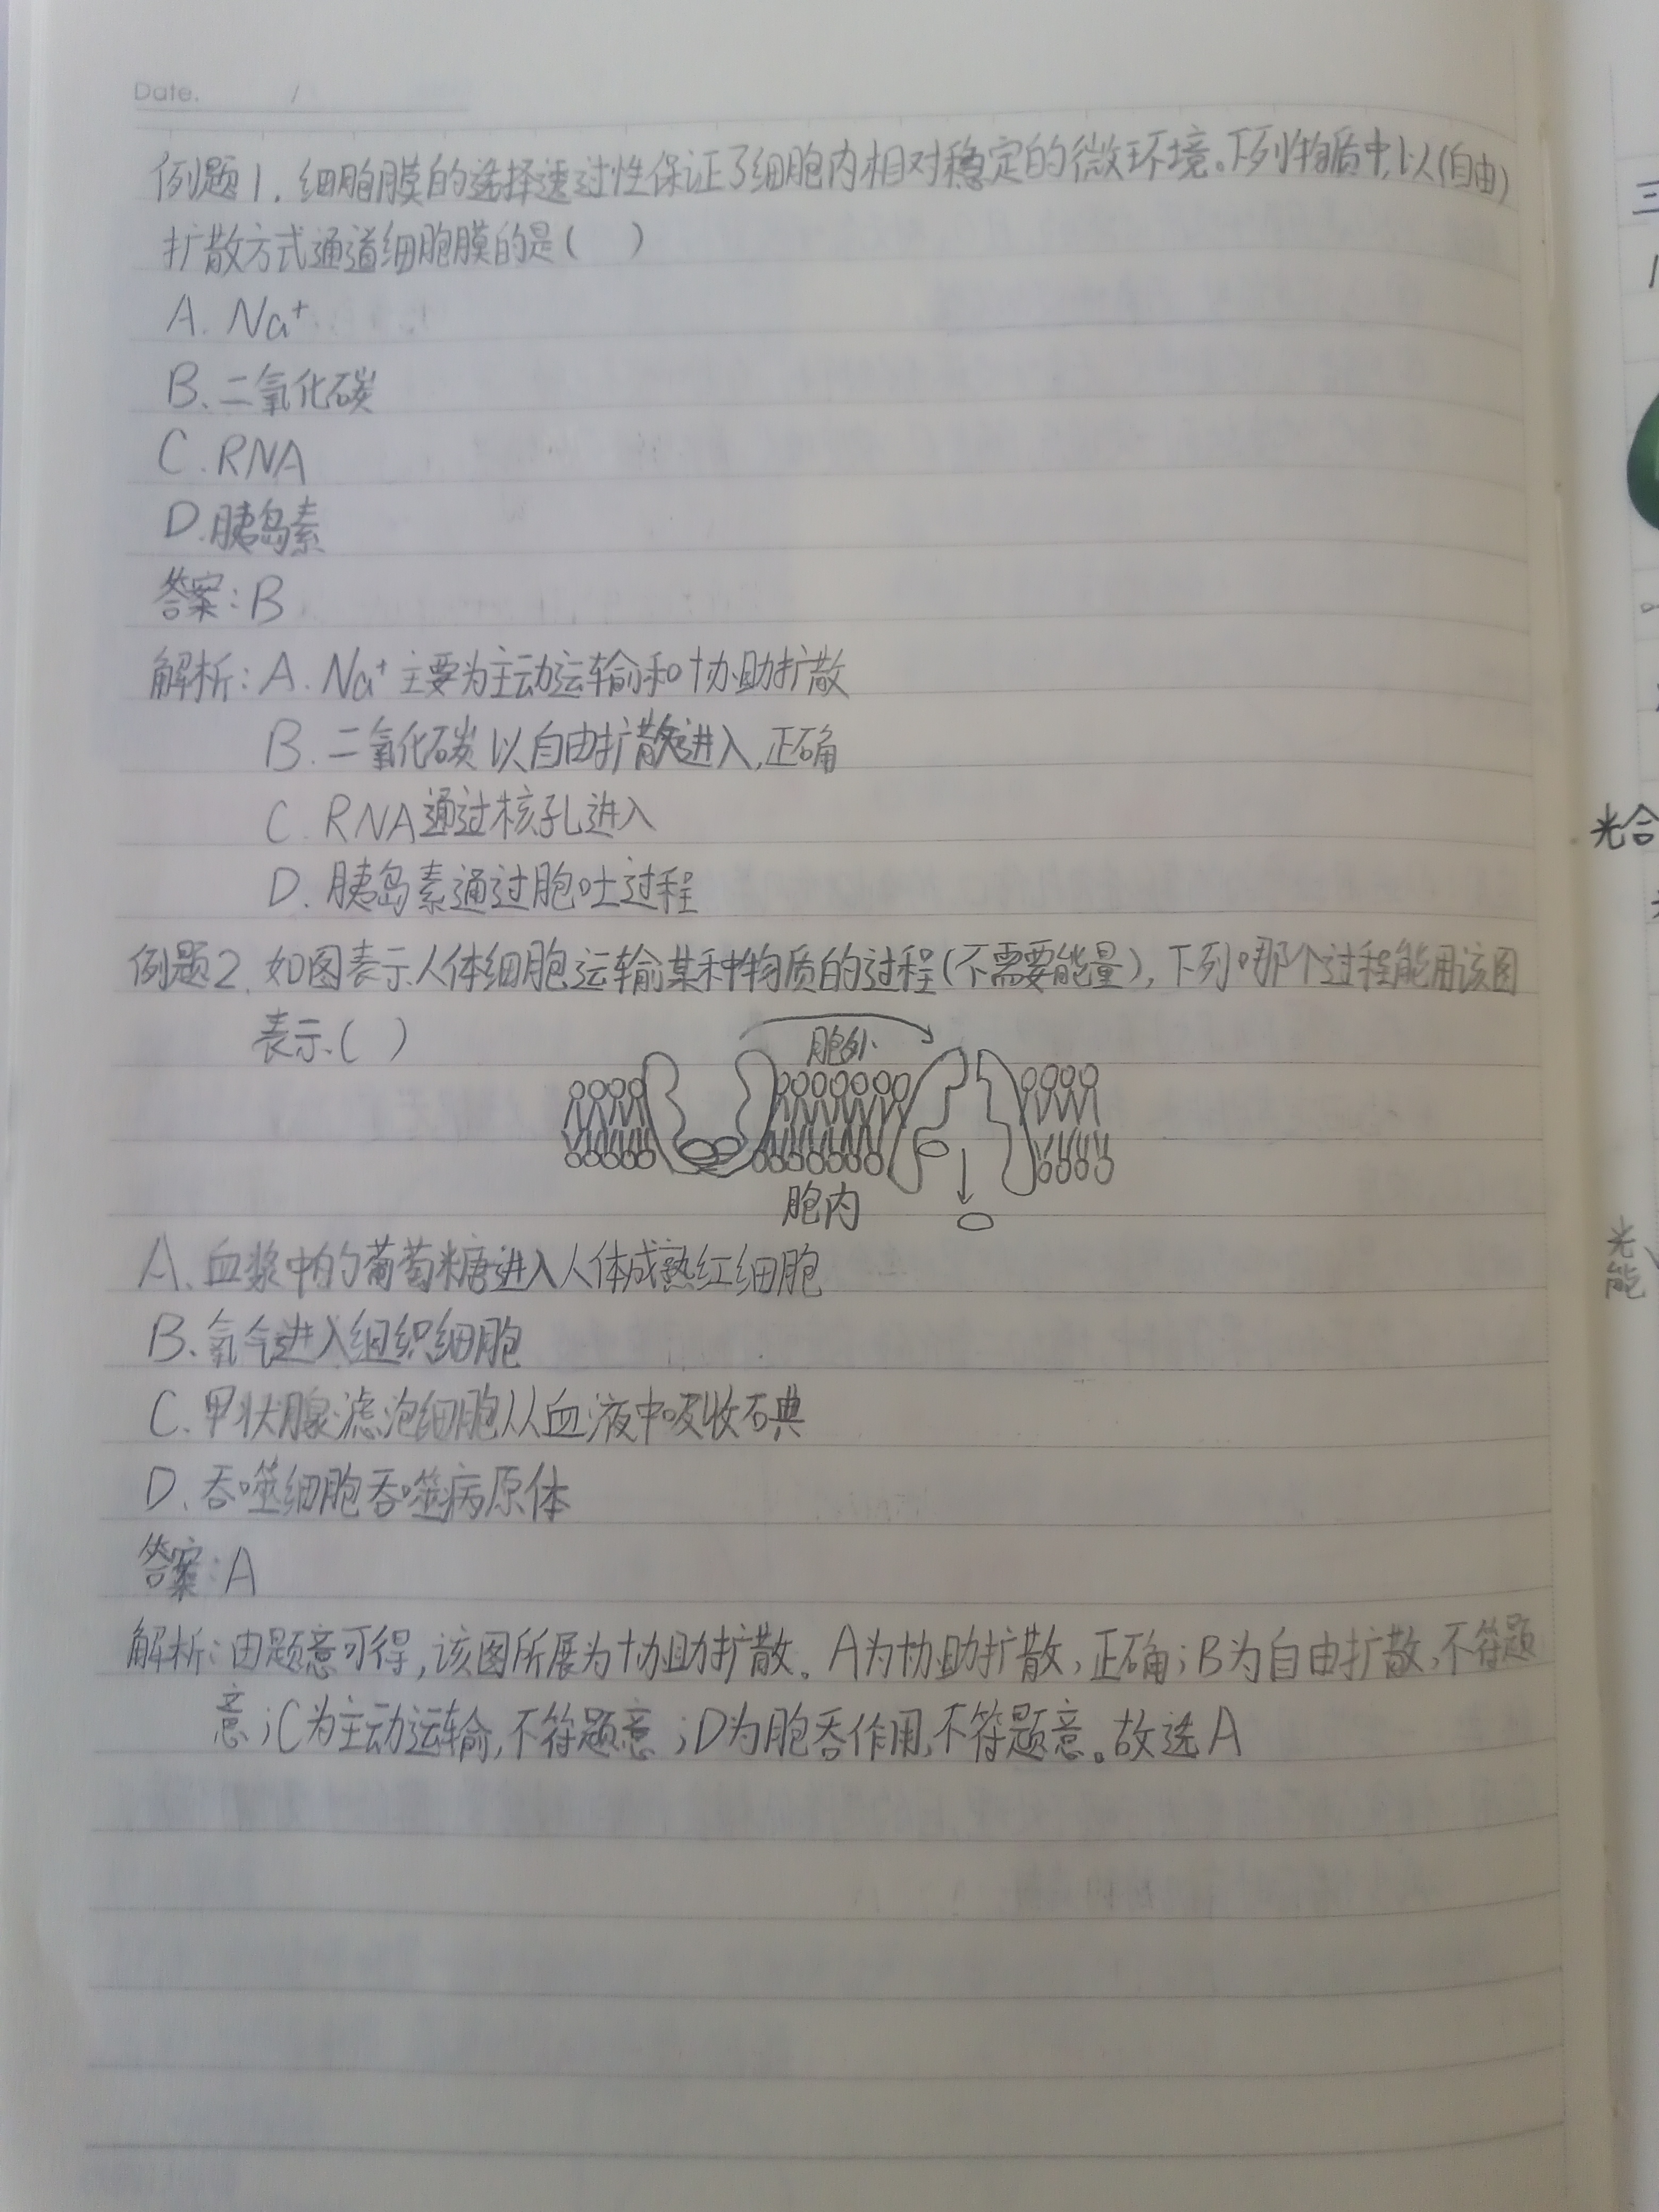 Date. /
例题1. 细胞膜的选择透过性保证了细胞内相对稳定的微环境。下列物质中,以(自由)
扩散方式通道细胞膜的是( )
A. Na⁺
B、二氧化碳
C. RNA
D.胰岛素
答案:B
解析:A. Na⁺ 主要为主动运输和协助扩散
B. 二氧化碳以自由扩散进入,正确
C. RNA通过核孔进入
D. 胰岛素通过胞吐过程
例题2. 如图表示人体细胞运输某种物质的过程(不需要能量),下列哪个过程能用该图
表示( )
胞外
胞内
A、血浆中的葡萄糖进入人体成熟红细胞
B、氧气进入组织细胞
C. 甲状腺滤泡细胞从血液中吸收石典
D、吞噬细胞吞噬病原体
答案:A
解析:由题意可得,该图所展为协助扩散。A为协助扩散,正确;B为自由扩散,不符题
意;C为主动运输,不符题意;D为胞吞作用,不符题意。故选A
三
光合
光
能